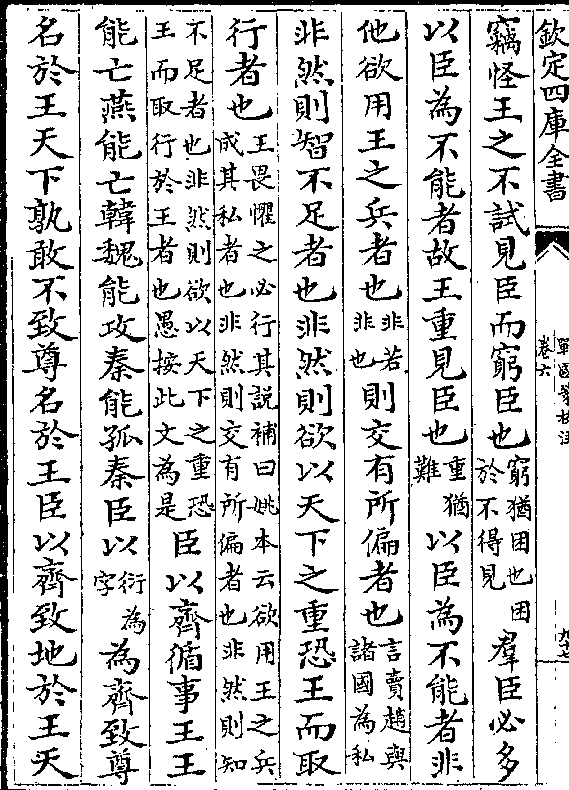 欽定四庫全書
戰國策校注
卷六
竊怪王之不試見臣而窮臣也窮猶困也困於不得見羣臣必多
以臣為不能者故王重見臣也重猶難以臣為不能者非
他欲用王之兵者也非若非也則交有所偏者也言賣趙與諸國為私
非然則智不足者也非然則欲以天下之重恐王而取
行者也王畏懼之必行其說補曰姚本云欲用王之兵成其私者也非然則交有所偏者也非然則知
不足者也非然則欲以天下之重恐王而取行於王者也愚按此文為是臣以齊循事王王
能亡燕能亡韓魏能攻秦能孤秦臣以衍為字為齊致尊
名於王天下孰敢不致尊名於王臣以齊致地於王天